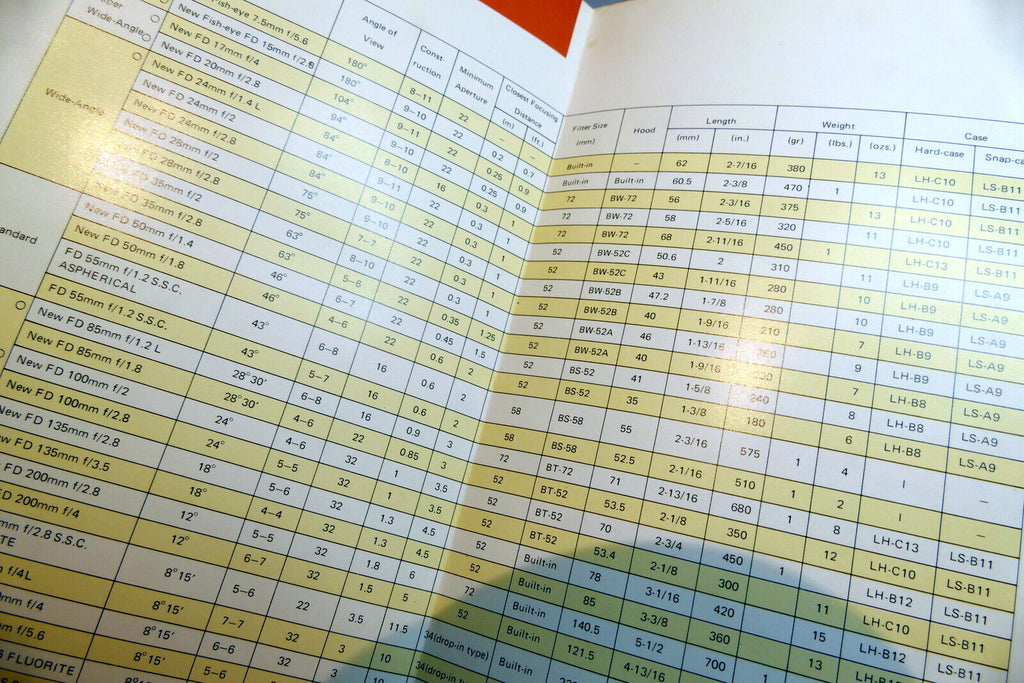 Angle of View
Construction
Minimum Aperture
Closest Focusing Distance
(m) (ft.)
Wide-Angle
Wide-Angle
Fish-eye 7.5mm f/5.6 180° 8–11 22 – –
New Fish-eye FD 15mm f/2.8 180° 9–10 22 0.2 0.7
New FD 17mm f/4 104° 9–11 22 0.25 0.9
New FD 20mm f/2.8 94° 9–10 22 0.25 0.9
New FD 24mm f/1.4 L 84° 8–10 16 0.3 1
New FD 24mm f/2 84° 9–11 22 0.3 1
New FD 24mm f/2.8 84° 9–10 22 0.3 1
New FD 28mm f/2 75° 9–10 22 0.3 1
FD 28mm f/2.8 75° 7–7 22 0.3 1
FD 35mm f/2 63° 8–10 22 0.3 1
FD 35mm f/2.8 63° 5–6 22 0.35 1.25
New FD 50mm f/1.4 46° 6–7 22 0.45 1.5
New FD 50mm f/1.8 46° 4–6 22 0.6 2
FD 55mm f/1.2 S.S.C. ASPHERICAL 43° 6–8 16 0.6 2
FD 55mm f/1.2 S.S.C. 43° 5–7 16 0.6 2
New FD 85mm f/1.2 L 28°30′ 6–8 16 0.9 3
New FD 85mm f/1.8 28°30′ 4–6 22 0.85 3
New FD 100mm f/2 24° 4–6 32 1 3.5
New FD 100mm f/2.8 24° 5–5 32 1 3.5
New FD 135mm f/2.8 18° 5–6 32 1.3 4.5
FD 135mm f/3.5 18° 4–4 32 1.3 4.5
FD 200mm f/2.8 12° 5–5 32 1.8 6
FD 200mm f/4 12° 6–7 32 1.5 5
f/2.8 S.S.C. 8°15′ 5–6 22 3.5 11.5
f/4L 8°15′ 7–7 32 3 10
f/4 8°15′ 6–6 32 3
f/5.6 8°15′ 5–6
FLUORITE
Filter Size (mm)
Hood
Length
(mm) (in.)
Weight
(gr) (lbs.) (ozs.)
Case
Hard-case
Built-in – 62 2-7/16 380 13 LH-C10 LS-B11
Built-in Built-in 60.5 2-3/8 470 1 LH-C10 LS-B11
72 BW-72 56 2-3/16 375 13 LH-C10 LS-B11
72 BW-72 58 2-5/16 320 11 LH-C10 LS-B11
72 BW-72 68 2-11/16 450 1 LH-C13 LS-B11
52 BW-52C 50.6 2 310 11 LH-B9 LS-A9
52 BW-52C 43 1-11/16 280 10 LH-B9 LS-A9
52 BW-52B 47.2 1-7/8 280 10 LH-B9 LS-A9
52 BW-52B 40 1-9/16 210 7 LH-B9 LS-A9
52 BW-52A 46 1-13/16 9 LH-B9 LS-A9
52 BW-52A 40 1-9/16 LH-B8 LS-A9
52 BS-52 41 1-5/8 240 8 LH-B8 LS-A9
52 BS-52 35 1-3/8 180 6 LH-B8 LS-A9
58 BS-58 55 2-3/16 575 1 4 –
58 BS-58 52.5 2-1/16 510 1 2 –
72 BT-72 71 2-13/16 680 1 8 LH-C13 LS-B11
52 BT-52 53.5 2-1/8 350 12 LH-C10 LS-B11
52 BT-52 70 2-3/4 450 1 LH-B12 LS-B11
52 BT-52 53.4 2-1/8 300 11 LH-C10 LS-B11
52 Built-in 78 3-1/16 420 15 LH-B12 LS-B11
52 Built-in 85 3-3/8 360 13
72 Built-in 140.5 5-1/2 700 1
52 Built-in 121.5 4-13/16
34(drop-in type) Built-in